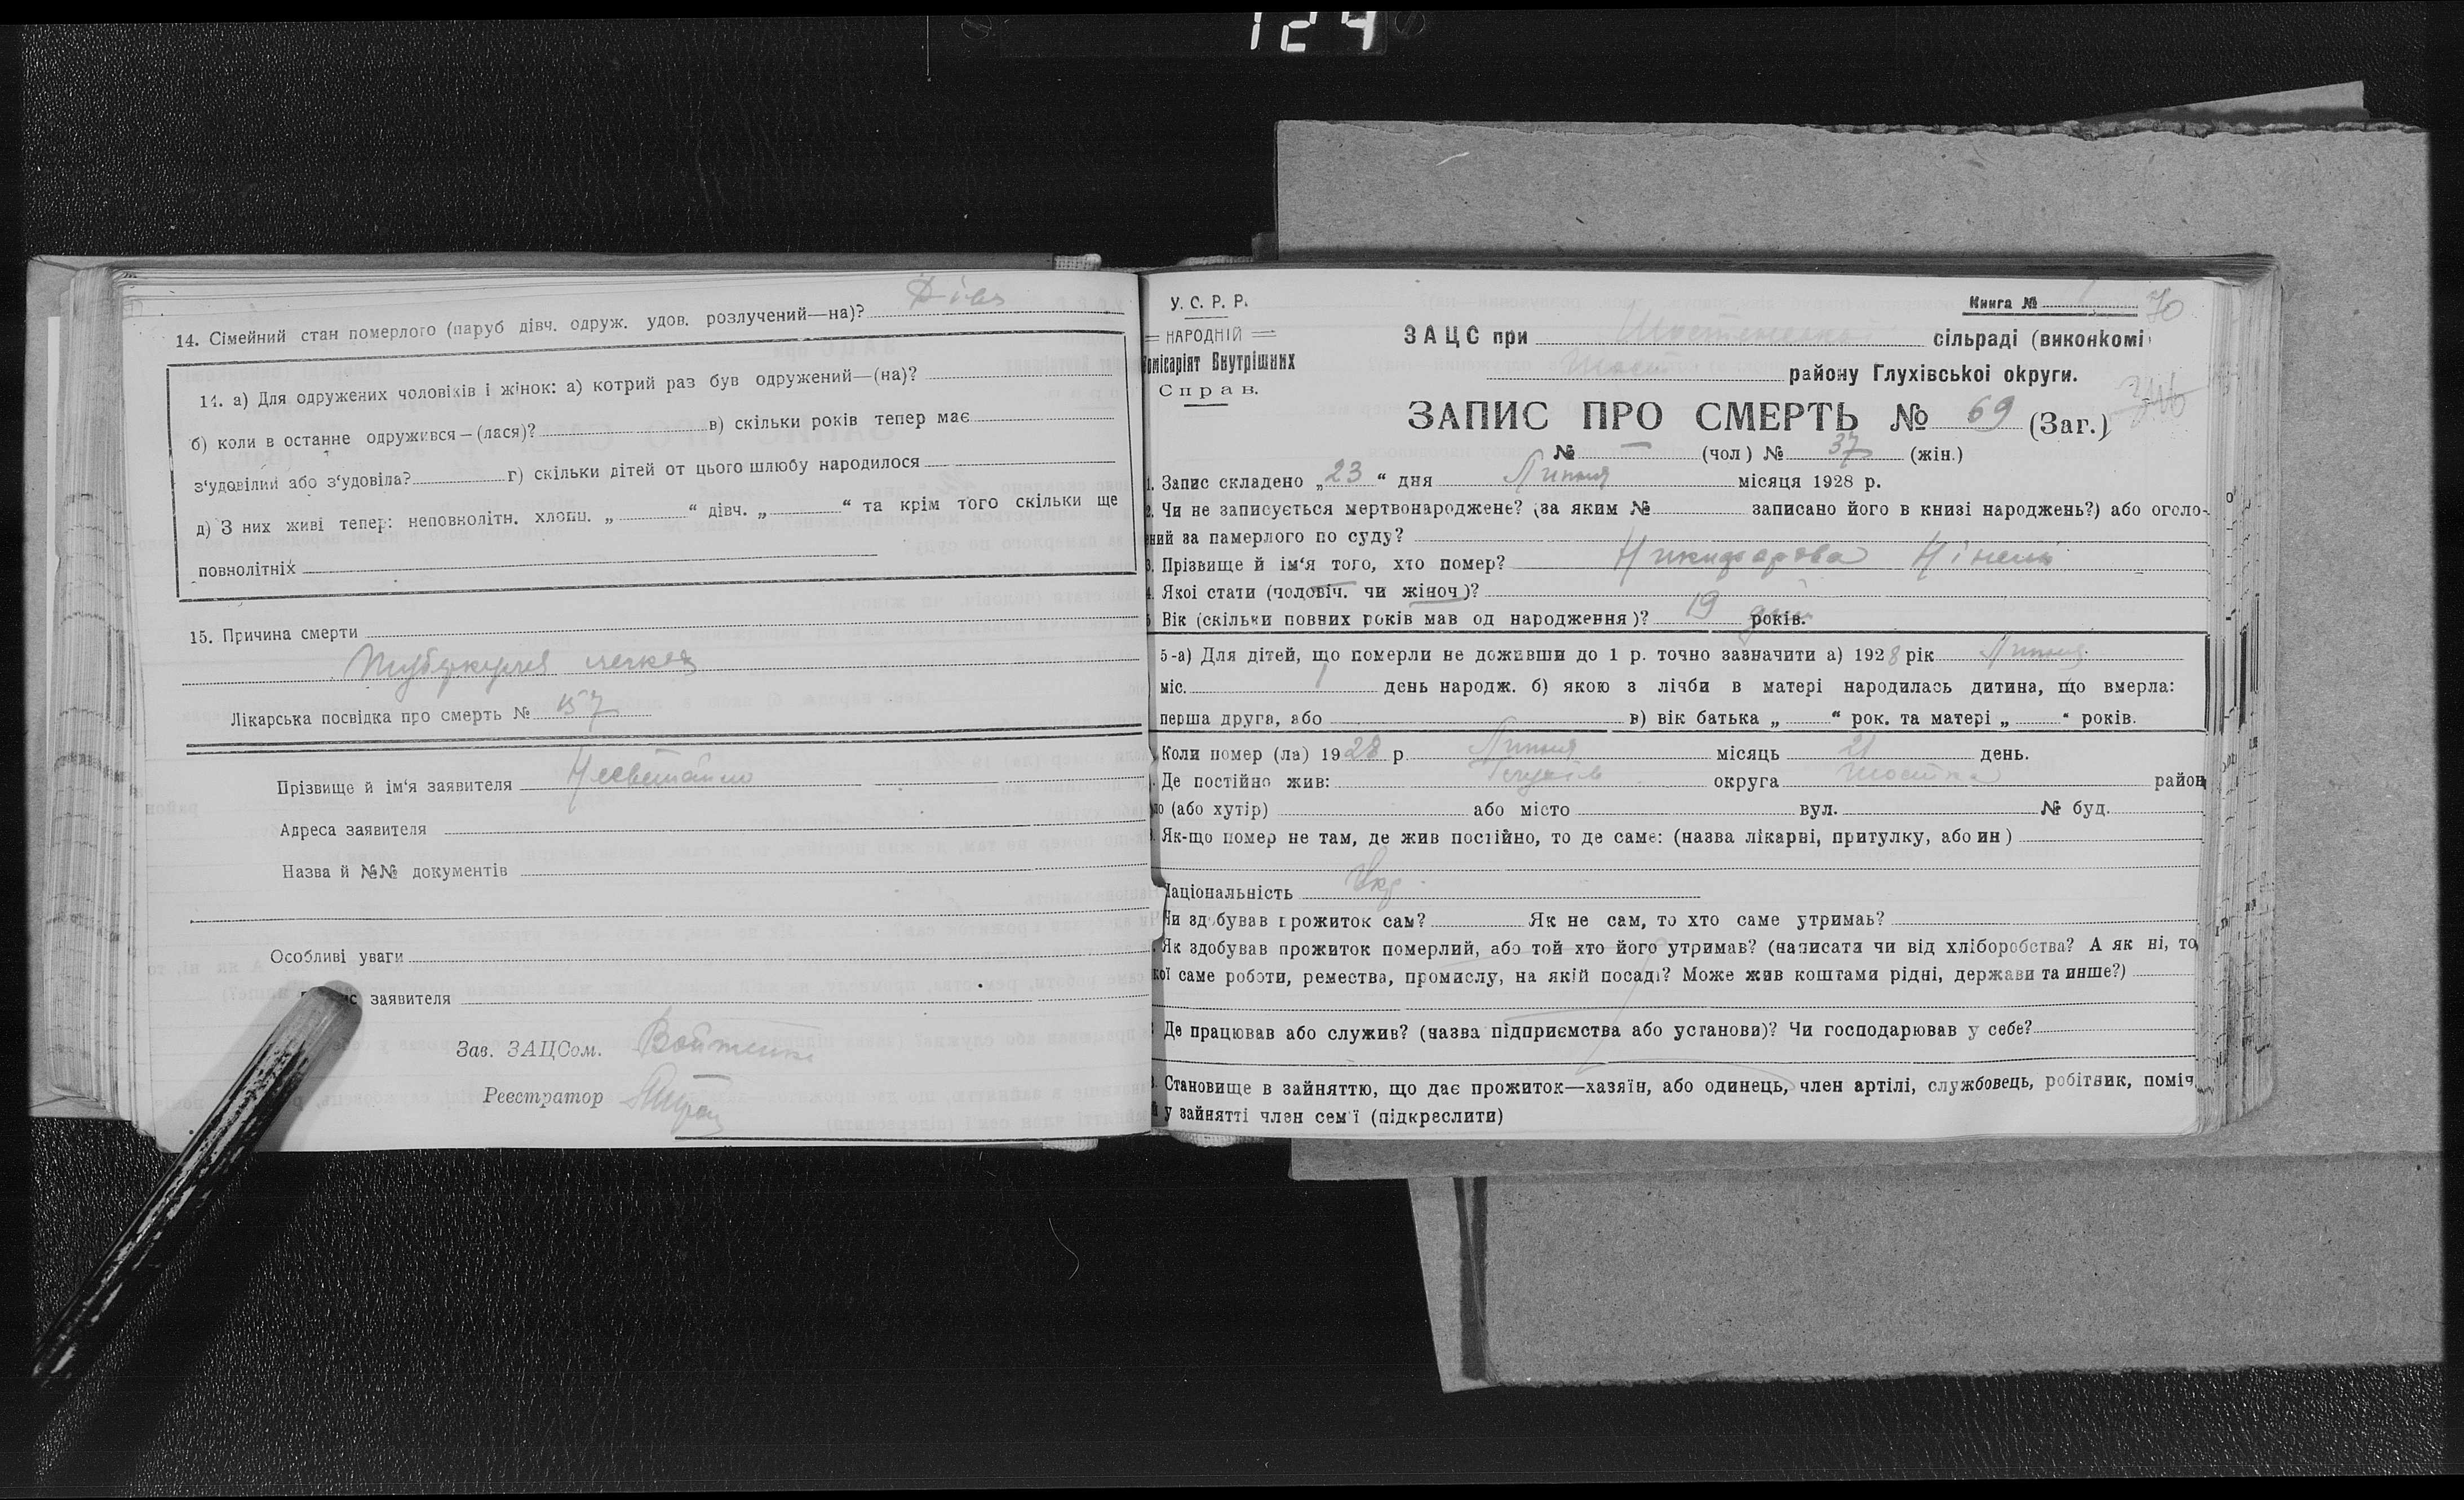 124
Дівч
14. Сімейний стан померлого (паруб дівч. одруж. удов. розлучений—на)?
14. а) Для одружених чоловіків і жінок: а) котрий раз був одружений—(на)?
б) коли в останне одружився—(лася)? в) скільки років тепер має
з'удовілий або з'удовіла? г) скільки дітей от цього шлюбу народилося
д) З них живі тепер: неповнолітн. хлопц. „ “ дівч. „ “ та крім того скільки ще
повнолітніх
15. Причина смерти
Туберкулез легких
Лікарська посвідка про смерть № 157
Прізвище й ім'я заявителя
Адреса заявителя
Назва й №№ документів
Особливі уваги
заявителя
Зав. ЗАЦСом. Войтенко
Реєстратор
У. С. Р. Р.
НАРОДНІЙ
Комісаріят Внутрішних
Справ.
Книга №
70
ЗАЦС при Шостенської сільраді (виконкомі
Шост району Глухівської округи.
ЗАПИС ПРО СМЕРТЬ № 69 (Заг.)
№ — (чол) № 37 (жін.)
1. Запис складено „23“ дня Липня місяця 1928 р.
2. Чи не записується мертвонароджене? (за яким № записано його в книзі народжень?) або оголо-
ний за памерлого по суду?
3. Прізвище й ім'я того, хто помер? Никифорова Нінель
4. Якої стати (чоловіч. чи жіноч)?
5 Вік (скільки повних років мав од народження)? 19 днів років.
5-а) Для дітей, що померли не доживши до 1 р. точно зазначити а) 1928 рік Липня
міс. 1 день народж. б) якою з лічби в матері народилась дитина, що вмерла:
перша друга, або в) вік батька „ “ рок. та матері „ “ років.
Коли помер (ла) 1928 р Липня місяць 21 день.
Де постійно жив: Глухів округа Шостка район
(або хутір) або місто вул. № буд.
Як-що помер не там, де жив постійно, то де саме: (назва лікарві, притулку, або ин)
Національність Укр
Чи здобував прожиток сам? Як не сам, то хто саме утримав?
Як здобував прожиток померлий, або той хто його утримав? (написати чи від хліборобства? А як ні, то
кої саме роботи, ремества, промислу, на якій посаді? Може жив коштами рідні, держави та инше?)
Де працював або служив? (назва підприємства або установи)? Чи господарював у себе?
Становище в зайняттю, що дає прожиток—хазяїн, або одинець, член артілі, службовець, робітник, поміч
у зайнятті член сем'ї (підкреслити)